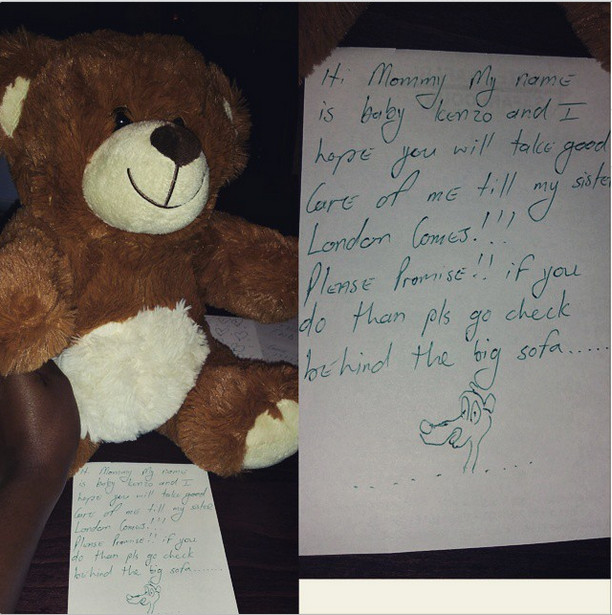 Hi Mommy My name
is baby kenzo and I
hope you will take good
Care of me till my sister
London Comes!!!
Please Promise!! if you
do than pls go check
behind the big sofa......
Hi Mommy My name
is baby kenzo and I
hope you will take good
Care of me till my sister
London Comes!!!
Please Promise!! if you
do than pls go check
behind the big sofa.......